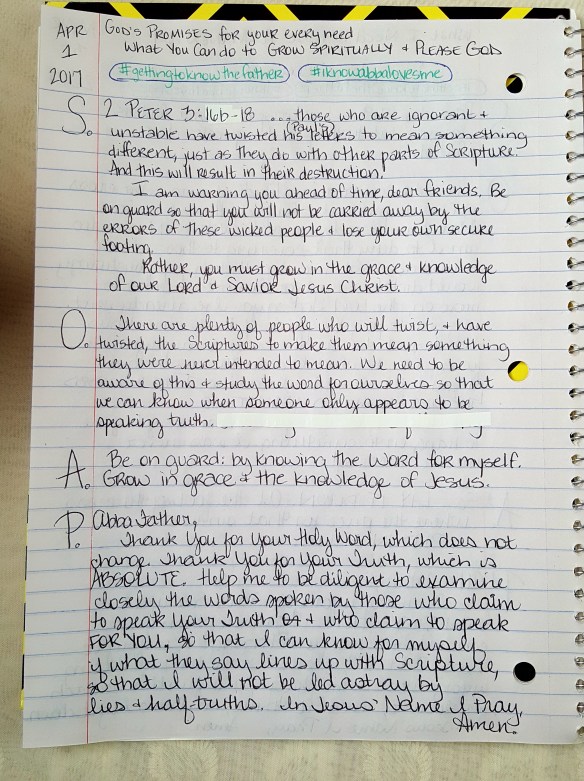 APR 1 2017
GOD'S PROMISES for your every need
What You Can do to GROW SPIRITUALLY & PLEASE GOD
#gettingtoknowthefather #iknowabbalovesme
S. 2 PETER 3:16b-18 ...those who are ignorant &
unstable have twisted his (Paul's) letters to mean something
different, just as they do with other parts of Scripture.
And this will result in their destruction.
I am warning you ahead of time, dear friends. Be
on guard so that you will not be carried away by the
errors of these wicked people & lose your own secure
footing.
Rather, you must grow in the grace & knowledge
of our Lord & Savior Jesus Christ.
O. There are plenty of people who will twist, & have
twisted, the Scriptures to make them mean something
they were never intended to mean. We need to be
aware of this & study the word for ourselves so that
we can know when someone only appears to be
speaking truth.
A. Be on guard: by knowing the Word for myself.
Grow in grace & the knowledge of Jesus.
P. Abba Father,
Thank You for Your Holy Word, which does not
change. Thank You for Your Truth, which is
ABSOLUTE. Help me to be diligent to examine
closely the words spoken by those who claim
to speak Your Truth & who claim to speak
FOR YOU, so that I can know for myself
if what they say lines up with Scripture,
so that I will not be led astray by
lies & half-truths. In Jesus' Name I Pray,
Amen.